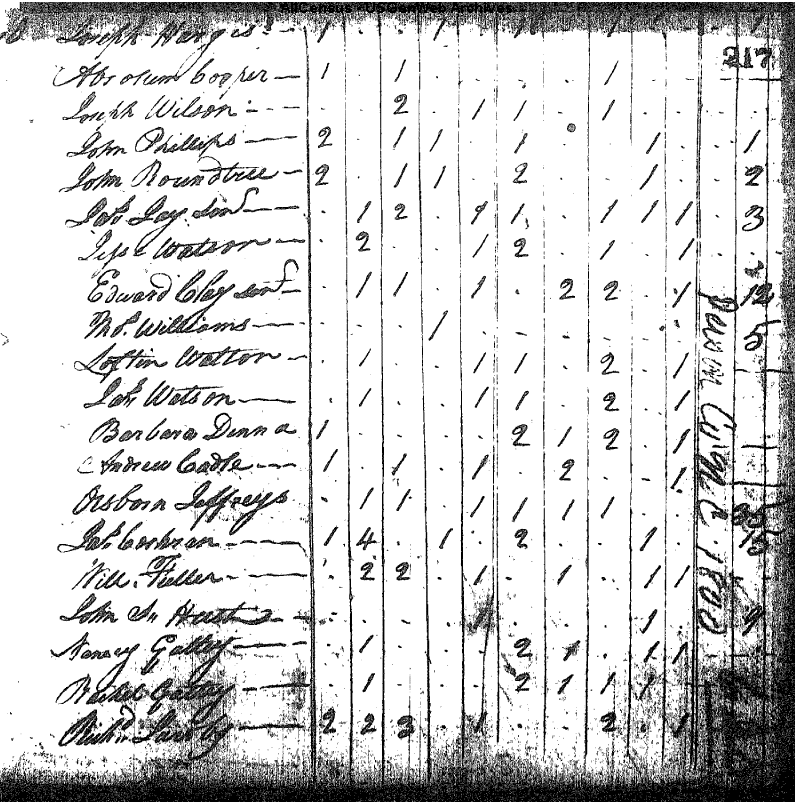 AllCensus - USGenWeb Archives
Joseph Hargis 1 . . 1 . 1 . 1 . . 1
217
Absolum Cooper 1 . 1 . . . . 1 . .
Joseph Wilson . . 2 . 1 1 . 1 . .
John Phillips 2 . 1 1 . 1 . . 1 . 1
John Roundtree 2 . 1 1 . 2 . . 1 . 2
Jas. Lay senr . 1 2 . 1 1 . 1 1 1 3
Jesse Watson . 2 . . 1 2 . 1 . 1
Edward Clay senr . 1 1 . 1 . 2 2 . 1 12
Thos. Williams . . . 1 . . . . . . 5
Loftin Walton . 1 . . 1 1 . 2 . 1
Jas. Watson . 1 . . 1 1 . 2 . 1
Barbara Dunn 1 . . . . 2 1 2 . 1
Andrew Cadle 1 . 1 . 1 . 2 . . 1
Osborn Jeffreys . 1 1 . 1 1 1 1 . .
Jas. Cochran 1 4 . 1 . 2 . . 1 . 15
Will. Fuller . 2 2 . 1 . 1 . 1 1
John . . . . 1 . . . 1 . 9
Nancy Gattey . 1 . . . 2 1 . 1 1
Rachel Gattey . 1 . . . 2 1 1 1 .
Richd. 2 2 3 . 1 . . 2 . 1
1800